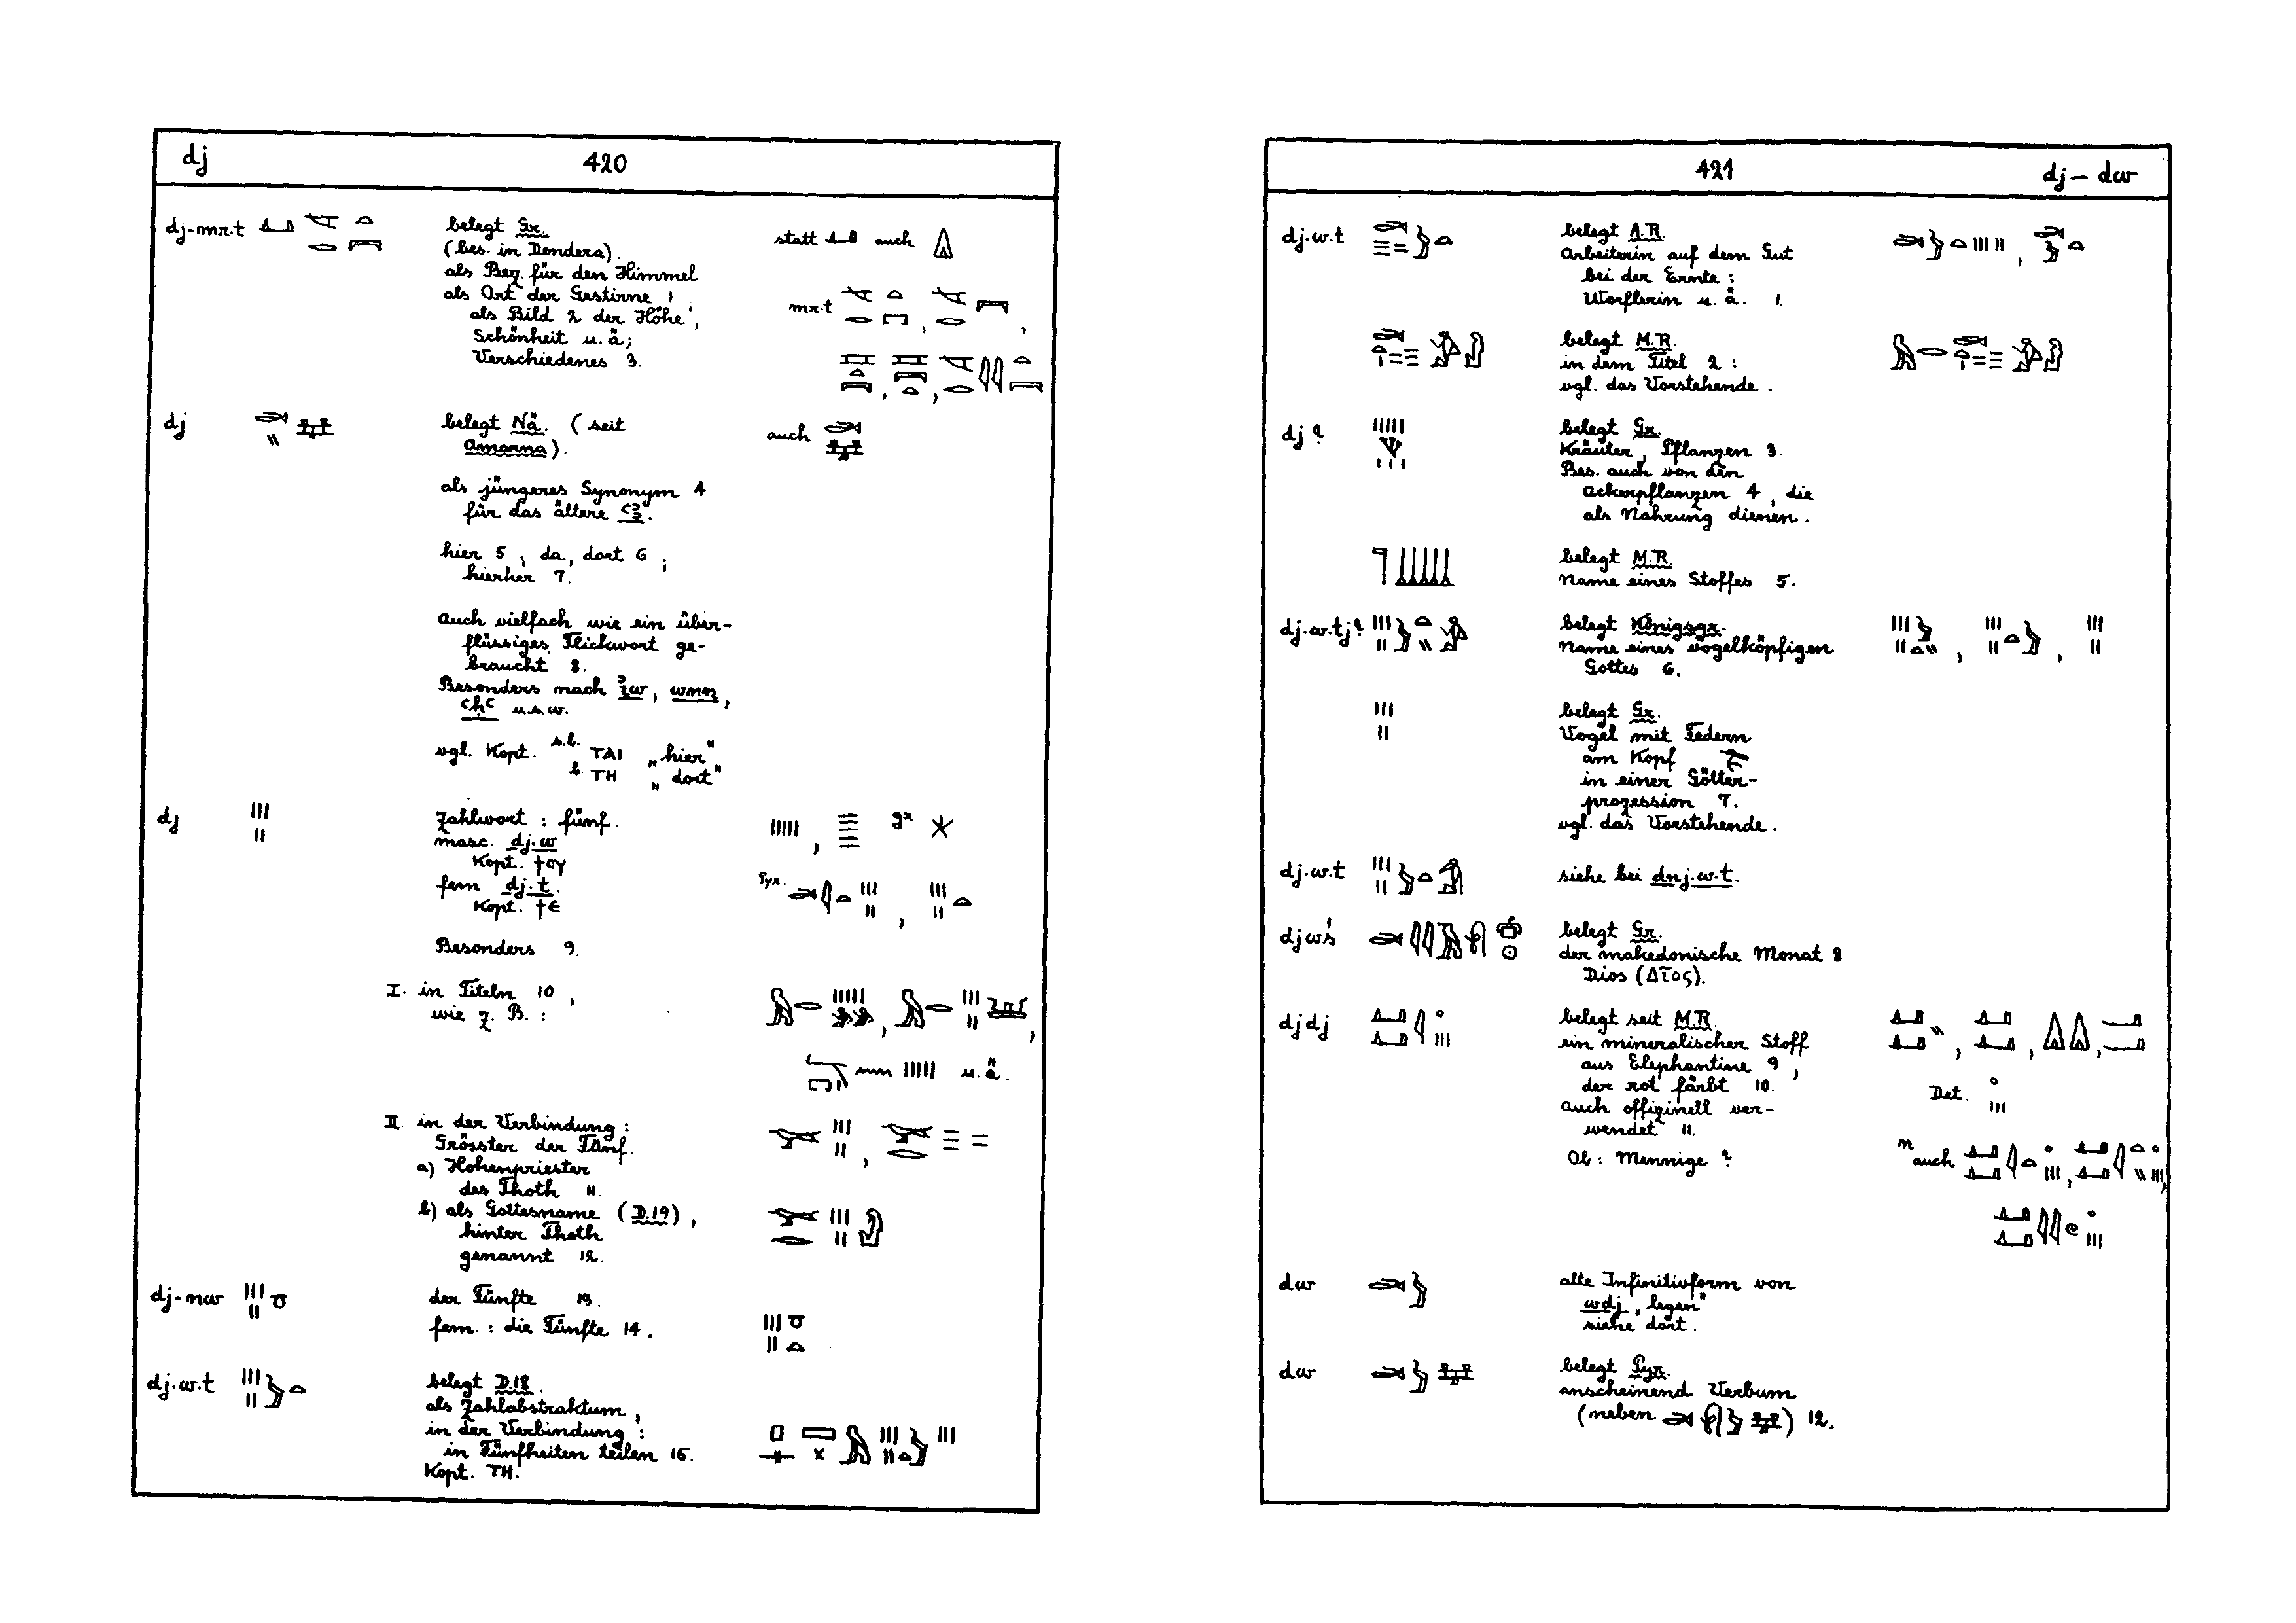 dj
420
dj-mr.t
belegt Gr.
(bes. in Dendera).
als Bez. für den Himmel
als Ort der Gestirne 1,
als Bild 2 der Höhe,
Schönheit u. ä;
Verschiedenes 3.
statt auch
mr.t
dj
belegt Nä. (seit
Amarna).
auch
als jüngeres Synonym 4
für das ältere ꜥꜣ.
hier 5, da, dort 6;
hierher 7.
Auch vielfach wie ein über-
flüssiges Flickwort ge-
braucht 8.
Besonders nach ꜣw, wnn,
ꜥḥꜥ u.s.w.
vgl. Kopt. s.b. ⲧⲁⲓ „hier"
b. ⲧⲏ „dort"
dj
Zahlwort: fünf.
masc. dj.w
Kopt. ϯⲟⲩ
fem dj.t.
Kopt. ϯⲉ
gr
Pyr.
Besonders 9.
I. in Titeln 10,
wie z. B.:
u. ä.
II. in der Verbindung:
Grösster der Fünf.
a) Hohenpriester
des Thoth 11.
b) als Gottesname (D.19),
hinter Thoth
genannt 12.
dj-nw
der Fünfte 13.
fem.: die Fünfte 14.
dj.w.t
belegt D.18
als Zahlabstraktum,
in der Verbindung:
in Fünfheiten teilen 15.
Kopt. ⲧⲏ.
421
dj – dw
dj.w.t
belegt A.R.
Arbeiterin auf dem Gut
bei der Ernte:
Worflerin u. ä. 1.
belegt M.R.
in dem Titel 2:
vgl. das Vorstehende.
dj?
belegt Gr.
Kräuter, Pflanzen 3.
Bes. auch von den
Ackerpflanzen 4, die
als Nahrung dienen.
belegt M.R.
Name eines Stoffes 5.
dj.w.tj?
belegt Königsgr.
Name eines vogelköpfigen
Gottes 6.
belegt Gr.
Vogel mit Federn
am Kopf
in einer Götter-
prozession 7.
vgl. das Vorstehende.
dj.w.t
siehe bei dnj.w.t.
djwś
belegt Gr.
der makedonische Monat 8
Dios (Δῖος).
djdj
belegt seit M.R.
ein mineralischer Stoff
aus Elephantine 9,
der rot färbt 10.
auch offizinell ver-
wendet 11.
Ob: Mennige?
Det.
n auch
dw
alte Infinitivform von
wdj „legen"
siehe dort.
dw
belegt Pyr.
anscheinend Verbum
(neben ) 12.